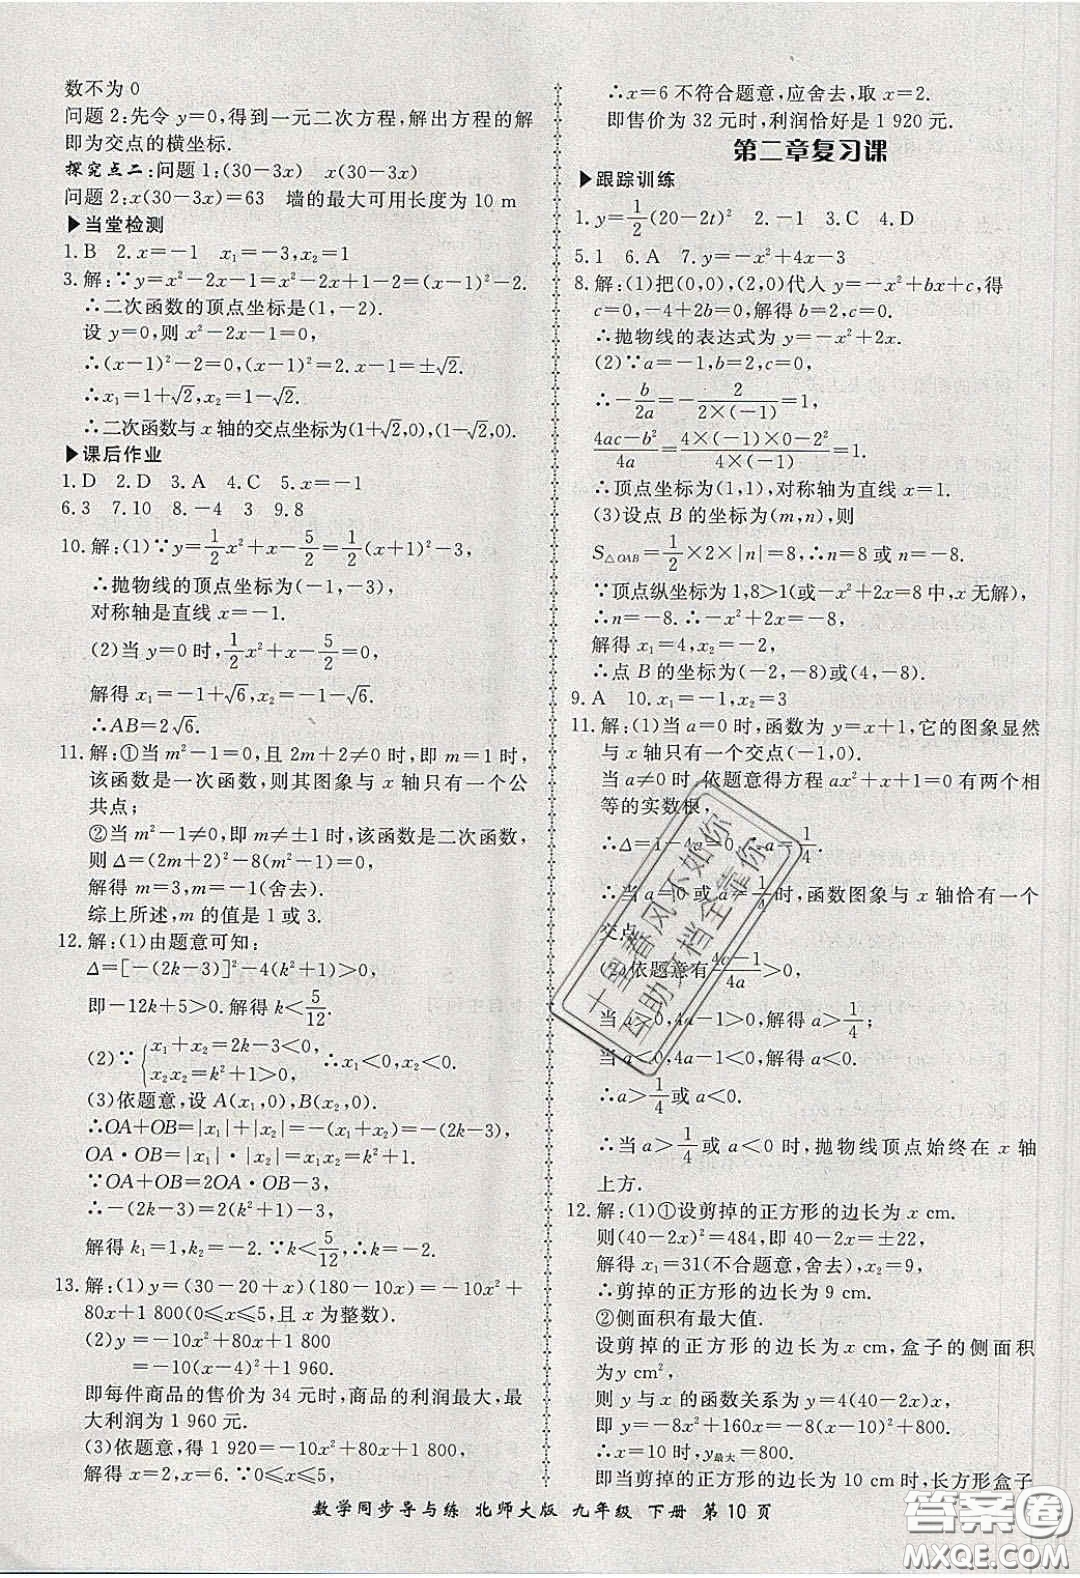 数不为 0
问题 2:先令 y=0,得到一元二次方程,解出方程的解
即为交点的横坐标.
探究点二:问题 1:(30-3x)  x(30-3x)
问题 2:x(30-3x)=63  墙的最大可用长度为 10 m
▶当堂检测
1. B  2. x=-1  x₁=-3,x₂=1
3. 解:∵y=x²-2x-1=x²-2x+1-2=(x-1)²-2.
∴二次函数的顶点坐标是(1,-2).
设 y=0,则 x²-2x-1=0,
∴(x-1)²-2=0,(x-1)²=2. x-1=±√2.
∴x₁=1+√2,x₂=1-√2.
∴二次函数与 x 轴的交点坐标为(1+√2,0),(1-√2,0).
▶课后作业
1. D  2. D  3. A  4. C  5. x=-1
6. 3  7. 10  8. -4  3  9. 8
10. 解:(1)∵y=1/2x²+x-5/2=1/2(x+1)²-3,
∴抛物线的顶点坐标为(-1,-3).
对称轴是直线 x=-1.
(2)当 y=0 时,1/2x²+x-5/2=0,
解得 x₁=-1+√6,x₂=-1-√6.
∴AB=2√6.
11. 解:①当 m²-1=0,且 2m+2≠0 时,即 m=1 时,
该函数是一次函数,则其图象与 x 轴只有一个公
共点;
②当 m²-1≠0,即 m≠±1 时,该函数是二次函数,
则 Δ=(2m+2)²-8(m²-1)=0.
解得 m=3,m=-1(舍去).
综上所述,m 的值是 1 或 3.
12. 解:(1)由题意可知:
Δ=[-(2k-3)]²-4(k²+1)>0,
即-12k+5>0. 解得 k<5/12.
(2)∵{x₁+x₂=2k-3<0, x₂x₂=k²+1>0, ∴x₁<0,x₂<0.
(3)依题意,设 A(x₁,0),B(x₂,0).
∴OA+OB=|x₁|+|x₂|=-(x₁+x₂)=-(2k-3),
OA·OB=|x₁|·|x₂|=x₁x₂=k²+1.
∵OA+OB=2OA·OB-3,
∴-(2k-3)=2(k²+1)-3,
解得 k₁=1,k₂=-2. ∵k<5/12,∴k=-2.
13. 解:(1)y=(30-20+x)(180-10x)=-10x²+
80x+1 800(0≤x≤5,且 x 为整数).
(2)y=-10x²+80x+1 800
=-10(x-4)²+1 960.
即每件商品的售价为 34 元时,商品的利润最大,最
大利润为 1 960 元.
(3)依题意,得 1 920=-10x²+80x+1 800,
解得 x=2,x=6. ∵0≤x≤5,
∴x=6 不符合题意,应舍去,取 x=2.
即售价为 32 元时,利润恰好是 1 920 元.
第二章复习课
▶跟踪训练
1. y=1/2(20-2t)²  2. -1  3. C  4. D
5. 1  6. A  7. y=-x²+4x-3
8. 解:(1)把(0,0),(2,0)代人 y=-x²+bx+c,得
c=0,-4+2b=0,解得 b=2,c=0.
∴抛物线的表达式为 y=-x²+2x.
(2)∵a=-1,b=2,c=0,
∴-b/2a=-2/(2×(-1))=1,
(4ac-b²)/4a=(4×(-1)×0-2²)/(4×(-1))=1.
∴顶点坐标为(1,1),对称轴为直线 x=1.
(3)设点 B 的坐标为(m,n),则
S△OAB=1/2×2×|n|=8,∴n=8 或 n=-8.
∵顶点纵坐标为 1,8>1(或-x²+2x=8 中,x 无解),
∴n=-8. ∴-x²+2x=-8,
解得 x₁=4,x₂=-2.
∴点 B 的坐标为(-2,-8)或(4,-8).
9. A  10. x₁=-1,x₂=3
11. 解:(1)当 a=0 时,函数为 y=x+1,它的图象显然
与 x 轴只有一个交点(-1,0).
当 a≠0 时,依题意得方程 ax²+x+1=0 有两个相
等的实数根,
∴Δ=1-4a=0,∴a=1/4.
∴当 a=0 或 a=1/4时,函数图象与 x 轴恰有一个
交点.
(2)依题意有(4a-1)/4a>0,
当 a>0,4a-1>0,解得 a>1/4;
当 a<0,4a-1<0,解得 a<0.
∴a>1/4或 a<0.
∴当 a>1/4或 a<0 时,抛物线顶点始终在 x 轴
上方.
12. 解:(1)①设剪掉的正方形的边长为 x cm.
则(40-2x)²=484,即 40-2x=±22,
解得 x₁=31(不合题意,舍去),x₂=9,
∴剪掉的正方形的边长为 9 cm.
②侧面积有最大值.
设剪掉的正方形的边长为 x cm,盒子的侧面积
为y cm²,
则 y 与 x 的函数关系为 y=4(40-2x)x.
即 y=-8x²+160x=-8(x-10)²+800.
∴x=10 时,y最大=800.
即当剪掉的正方形的边长为 10 cm 时,长方形盒子
十里春风不如你
互助文档全靠你
数学同步导与练 北师大版 九年级 下册 第 10 页
答案圈
MXQE.COM